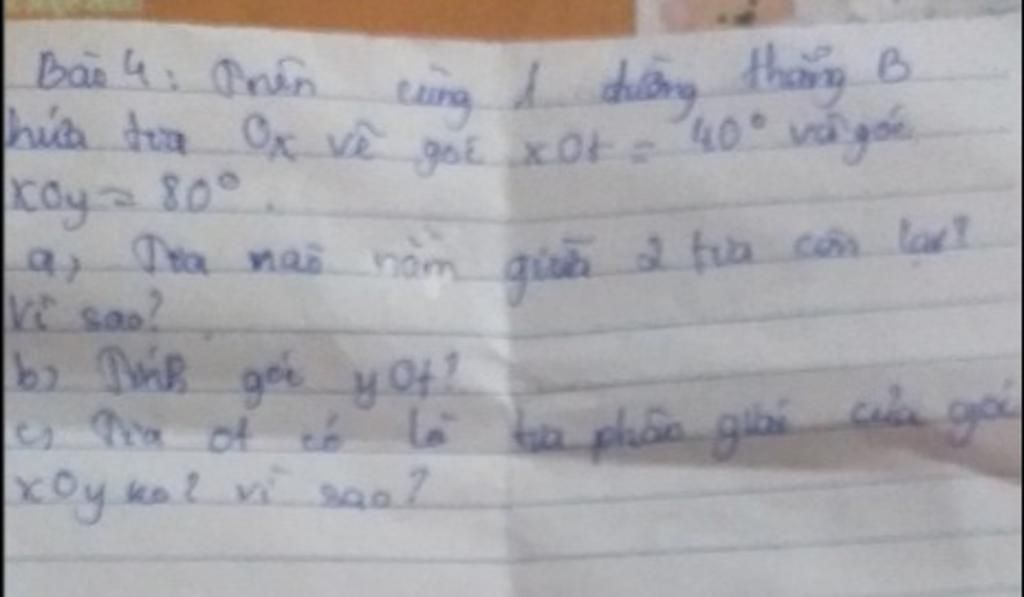 Bài 4: Trên cùng 1 đường thẳng B
hứa tia Ox vẽ góc xOt = 40° và góc
xOy = 80°.
a, Tia nào nằm giữa 2 tia còn lại?
Vì sao?
b, Tính góc yOt?
c, Tia Ot có là tia phân giác của góc
xOy ko? vì sao?